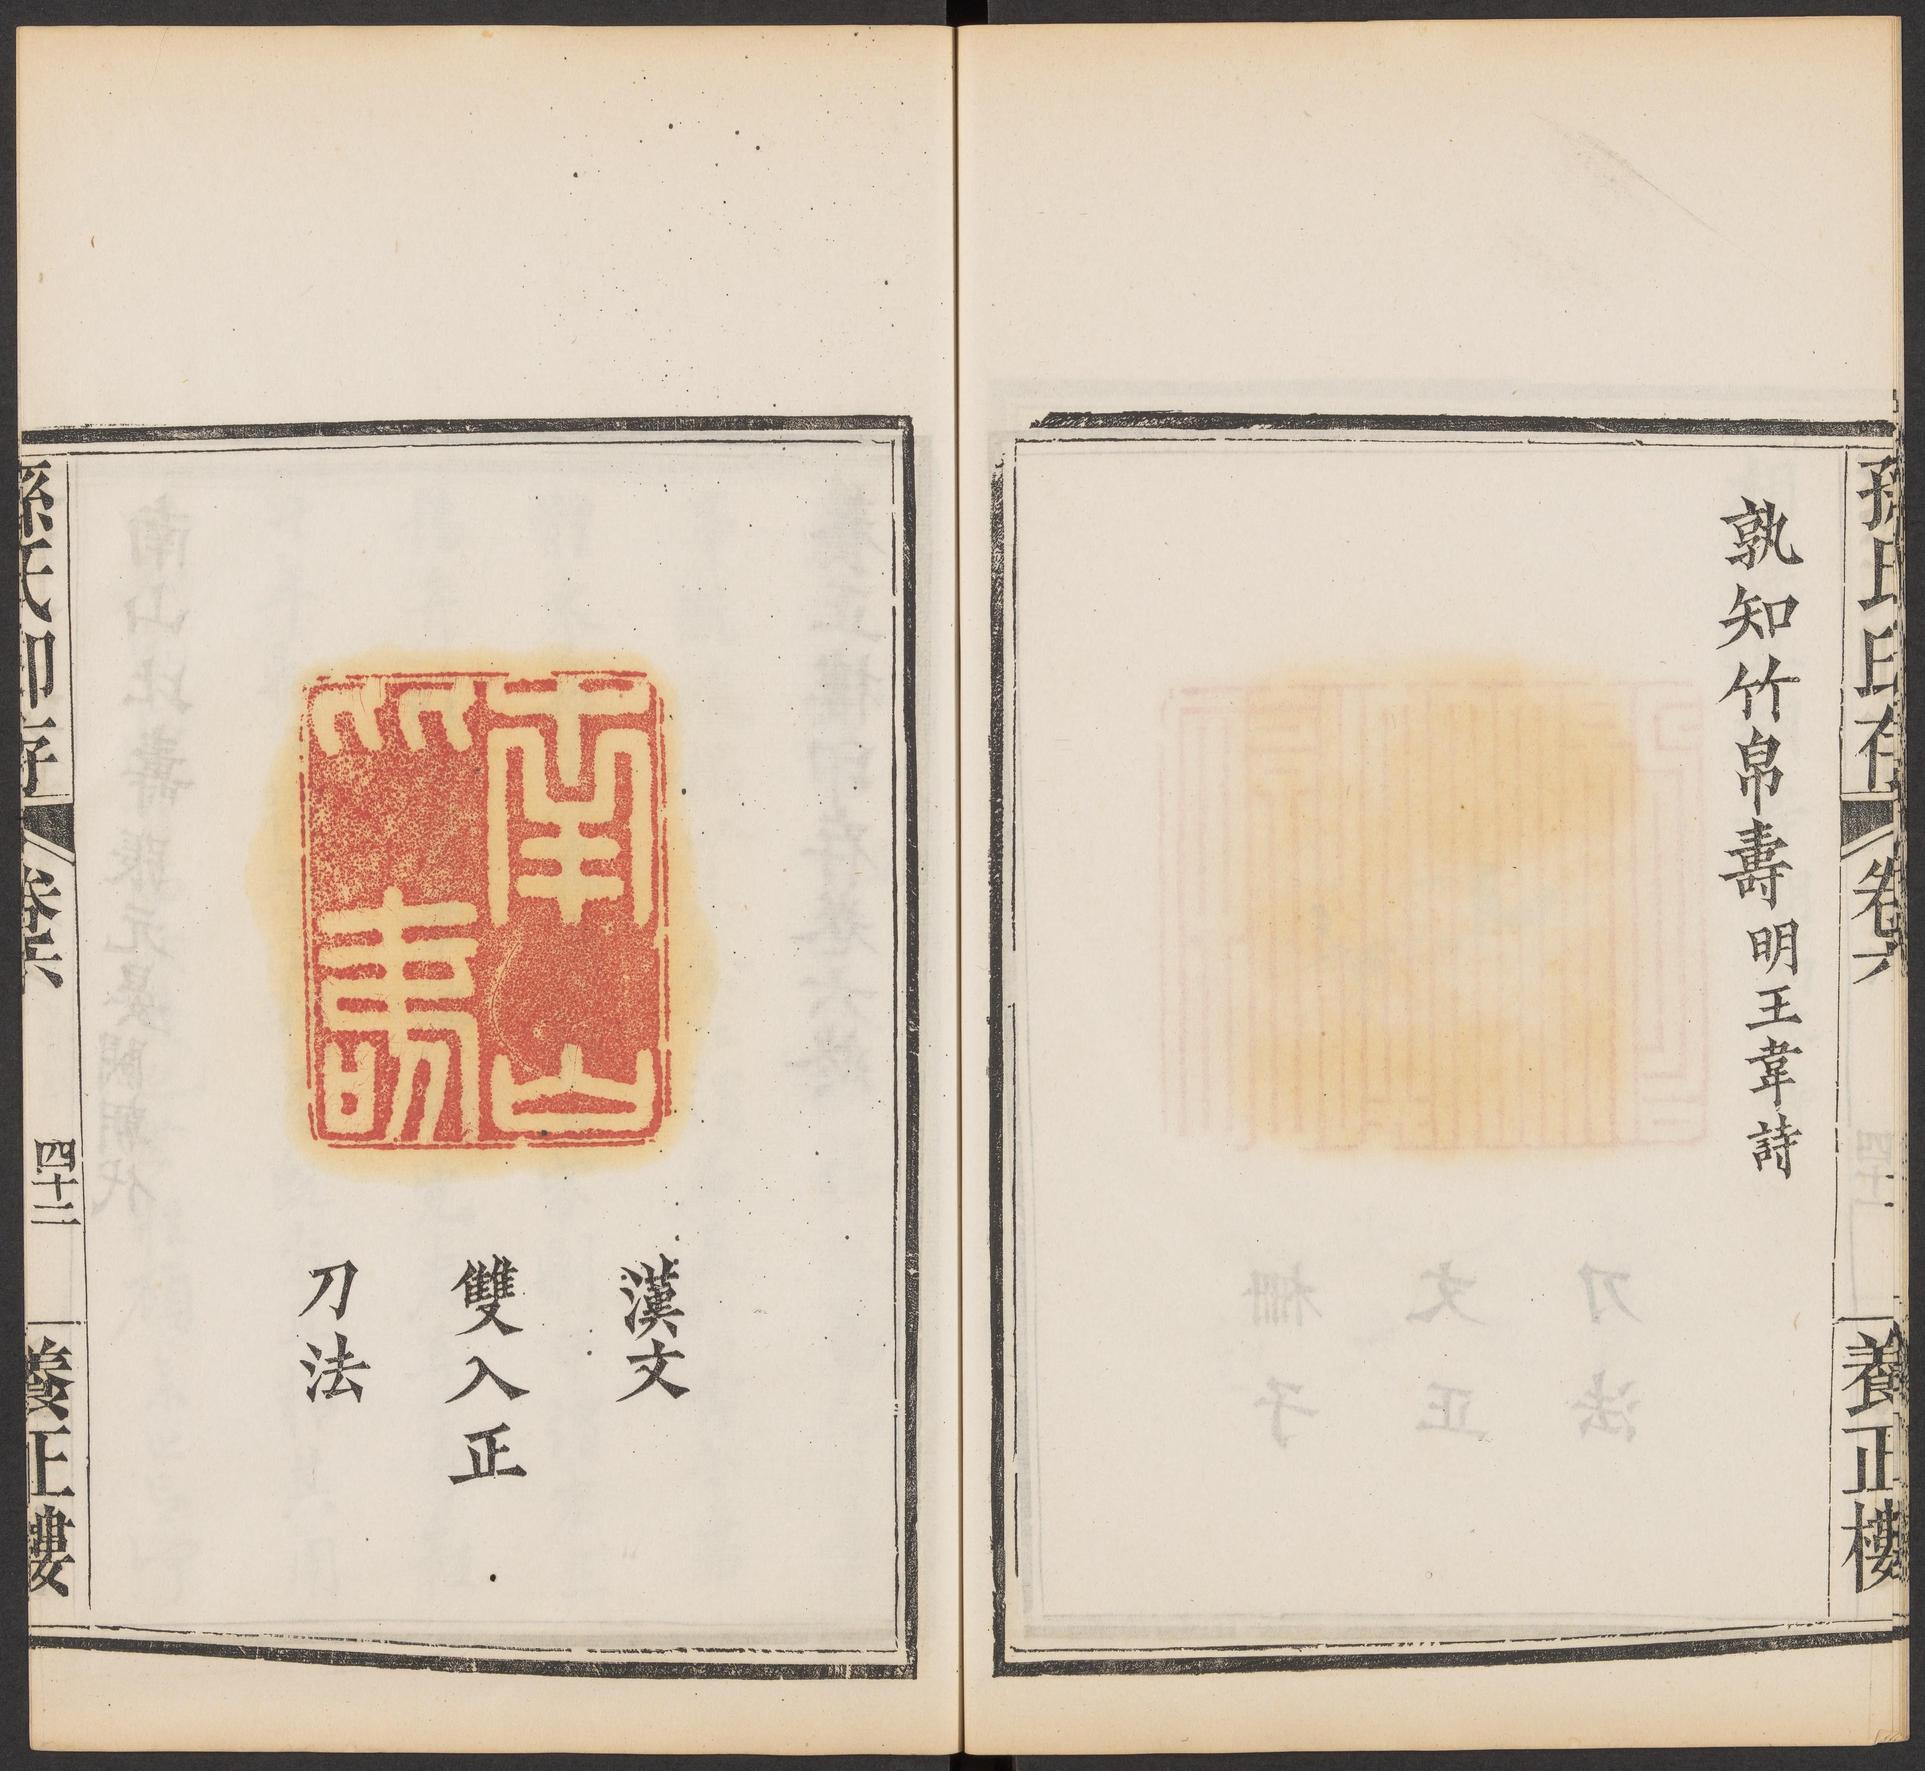 孫氏印存 卷六 養正樓
孰知竹帛壽 明王韋詩
南山
比壽
漢文
雙入正
刀法
孫氏印存 卷六 四十二 養正樓